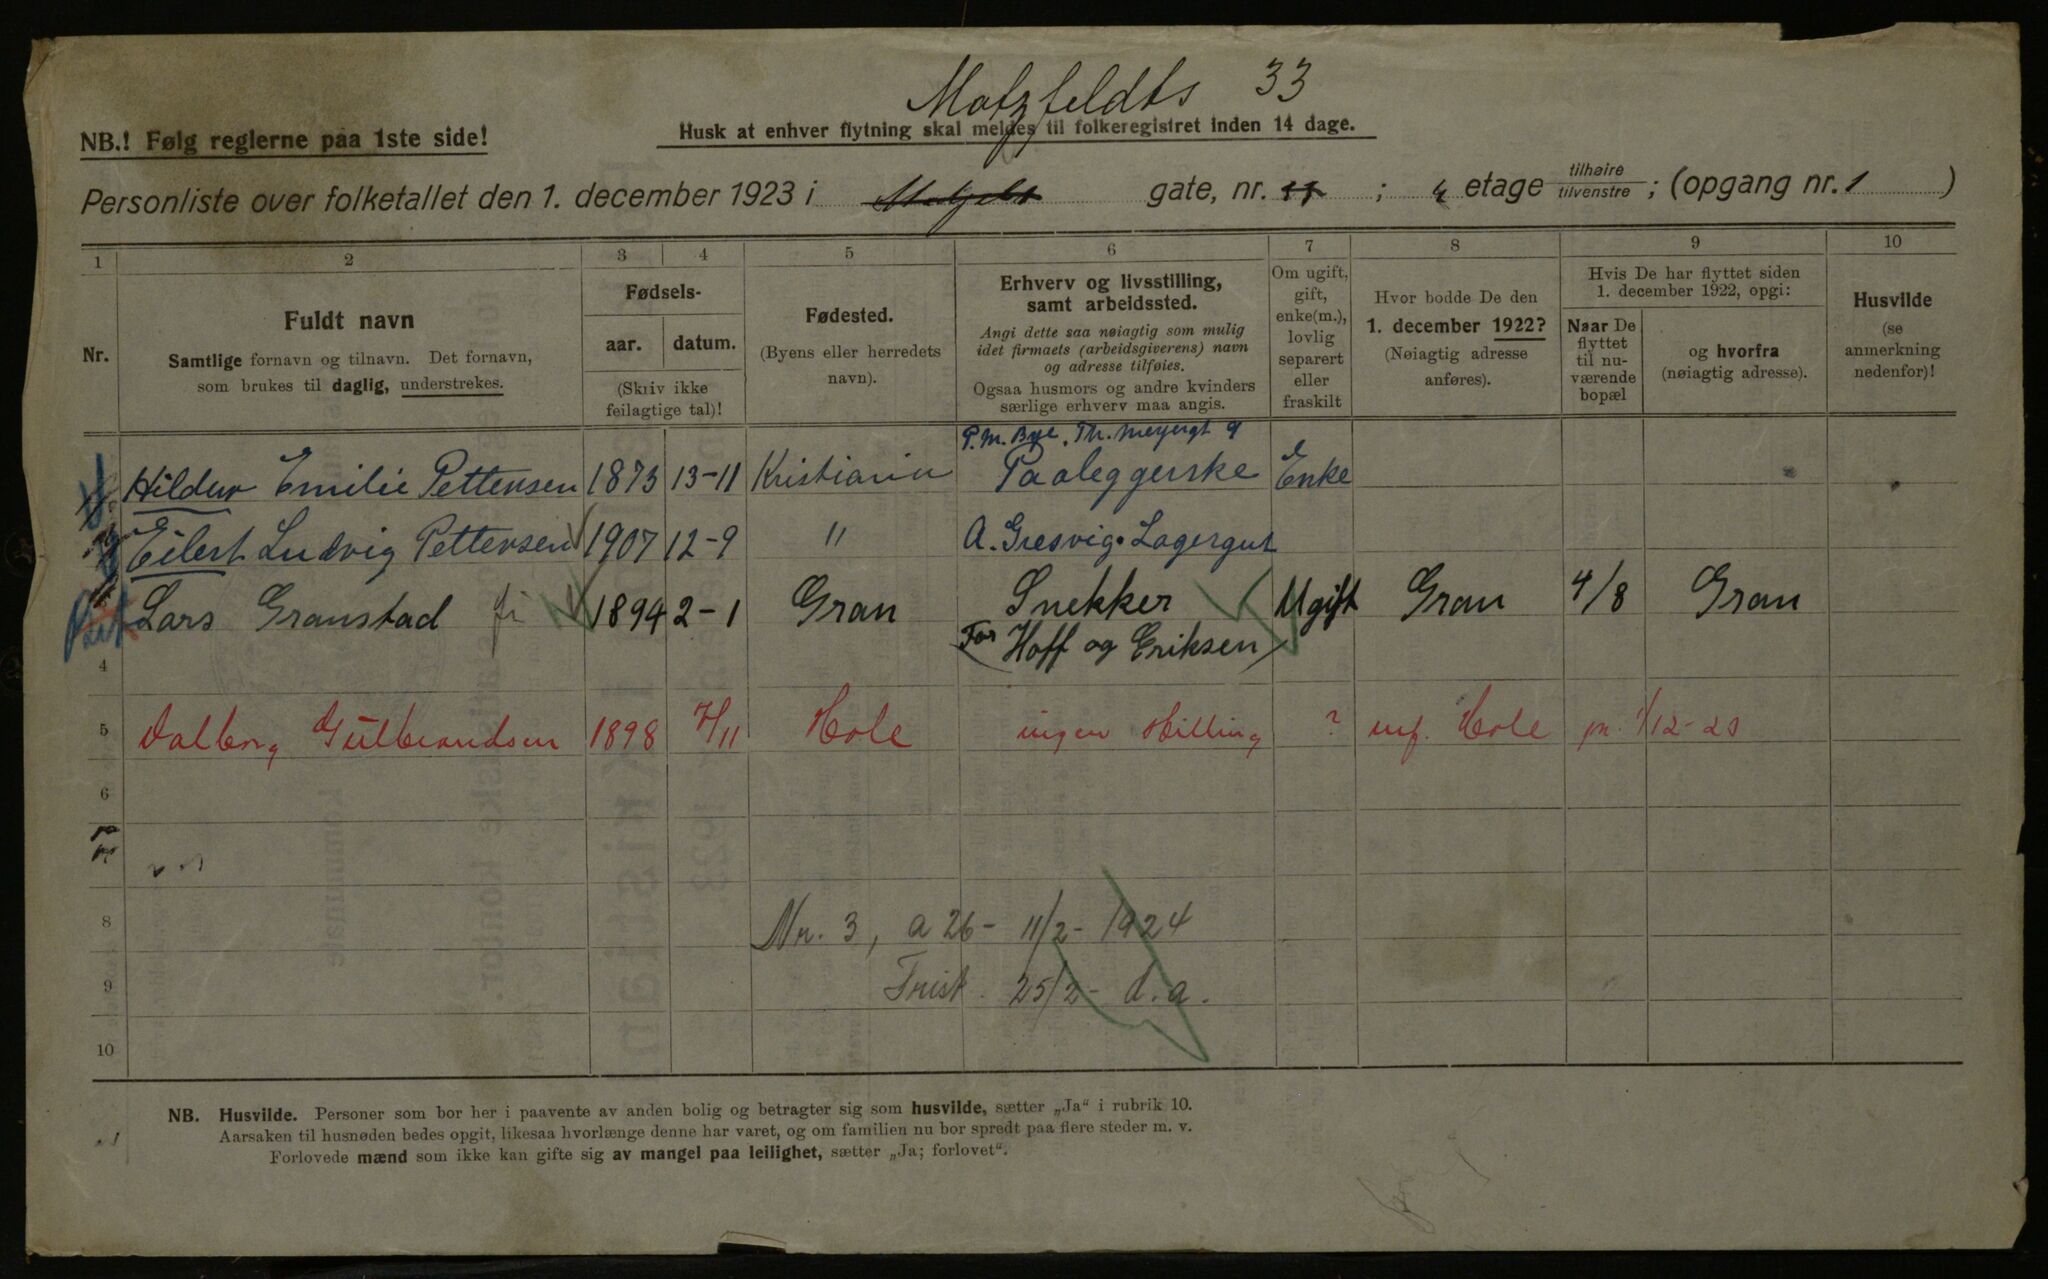 Motzfeldts 33
NB.! Følg reglerne paa 1ste side!
Husk at enhver flytning skal meldes til folkeregistret inden 14 dage.
Personliste over folketallet den 1. december 1923 i gate, nr. ; 4 etage tilhøire tilvenstre ; (opgang nr. 1 )
1 2 3 4 5 6 7 8 9 10
Nr.
Fuldt navn
Samtlige fornavn og tilnavn. Det fornavn,
som brukes til daglig, understrekes.
Fødsels-
aar. datum.
(Skriv ikke
feilagtige tal)!
Fødested.
(Byens eller herredets
navn).
Erhverv og livsstilling,
samt arbeidssted.
Angi dette saa nøiagtig som mulig
idet firmaets (arbeidsgiverens) navn
og adresse tilføies.
Ogsaa husmors og andre kvinders
særlige erhverv maa angis.
Om ugift,
gift,
enke(m.),
lovlig
separert
eller
fraskilt
Hvor bodde De den
1. december 1922?
(Nøiagtig adresse
anføres).
Hvis De har flyttet siden
1. december 1922, opgi:
Naar De
flyttet
til nu-
værende
bopæl
og hvorfra
(nøiagtig adresse).
Husvilde
(se
anmerkning
nedenfor)!
P.M. Bye, Th. Meyersgt 9
Hildur Emilie Pettersen 1873 13-11 Kristiania Paaleggerske Enke
Eilert Ludvig Pettersen 1907 12-9 " A. Gresvig. Lagergut
Lars Granstad 1894 2-1 Gran Snekker Ugift Gran 4/8 Gran
4 For Hoff og Eriksen)
5 Valborg Gulbrandsen 1898 7/11 Hole ingen stilling ? Hole 1/12-23
6
8 Nr. 3, a 26- 11/2- 1924
9 Frist. 25/2- d.a.
10
NB. Husvilde. Personer som bor her i paavente av anden bolig og betragter sig som husvilde, sætter „Ja“ i rubrik 10.
Aarsaken til husnøden bedes opgit, likesaa hvorlænge denne har varet, og om familien nu bor spredt paa flere steder m. v.
Forlovede mænd som ikke kan gifte sig av mangel paa leilighet, sætter „Ja; forlovet“.